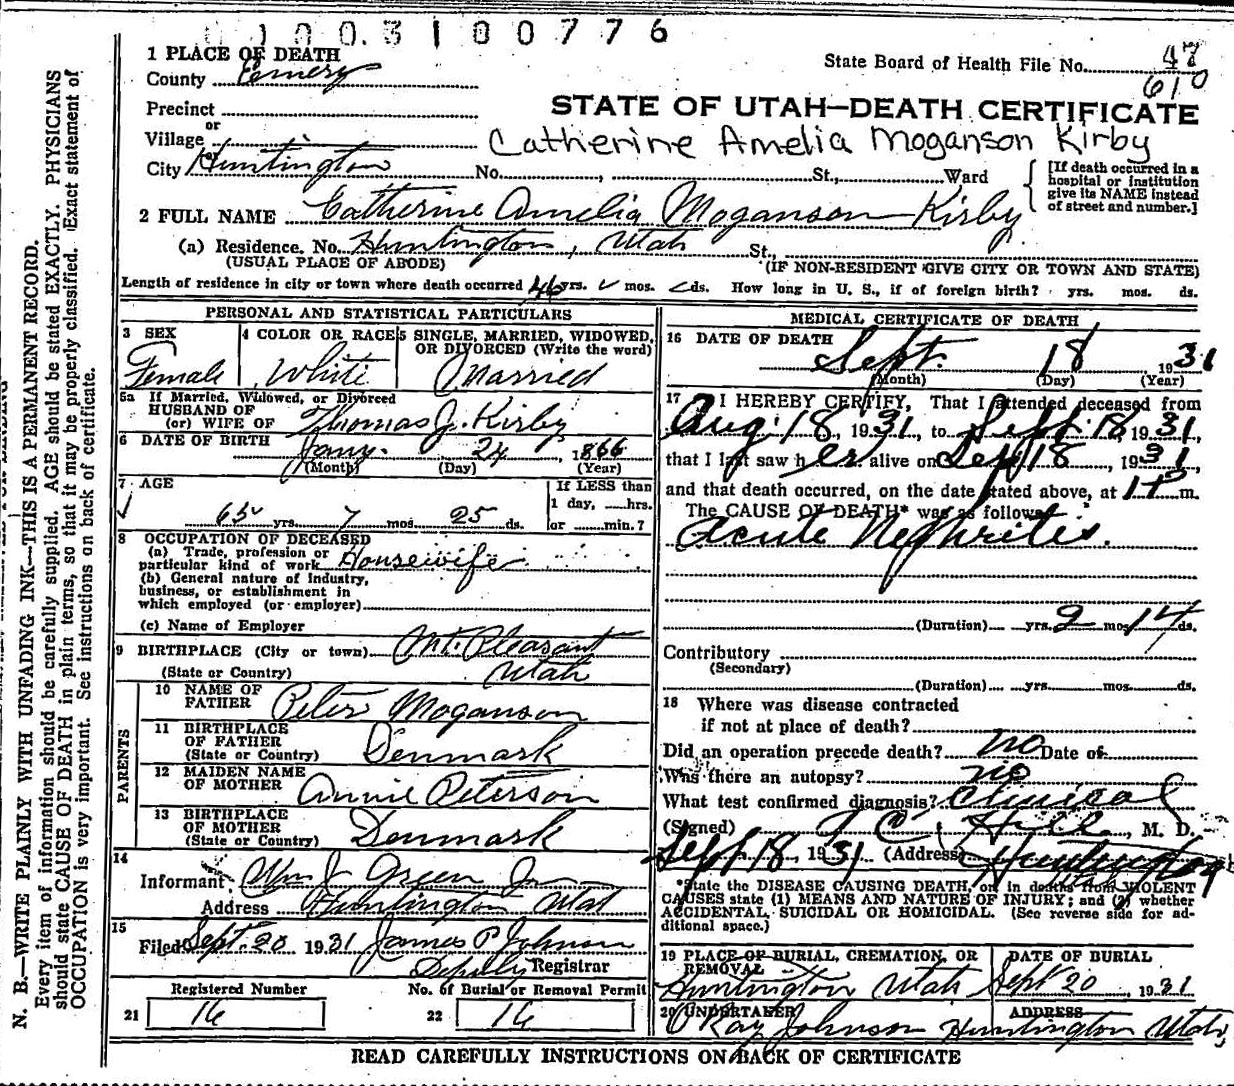 0 1 0 0 3 1 0 0 7 7 6
1 PLACE OF DEATH
County Emery
State Board of Health File No. 47
610
Precinct
or
Village
STATE OF UTAH—DEATH CERTIFICATE
Catherine Amelia Moganson Kirby
City Huntington No. , St., Ward
[If death occurred in a hospital or institution give its NAME instead of street and number.]
2 FULL NAME Catherine Amelia Moganson Kirby
(a) Residence. No. Huntington, Utah St.,
(USUAL PLACE OF ABODE) (IF NON-RESIDENT GIVE CITY OR TOWN AND STATE)
Length of residence in city or town where death occurred 46 yrs. mos. ds. How long in U. S., if of foreign birth? yrs. mos. ds.
PERSONAL AND STATISTICAL PARTICULARS
3 SEX 4 COLOR OR RACE 5 SINGLE, MARRIED, WIDOWED, OR DIVORCED (Write the word)
Female White Married
5a If Married, Widowed, or Divorced
HUSBAND OF
(or) WIFE OF Thomas J. Kirby
6 DATE OF BIRTH Jany. 24, 1866
(Month) (Day) (Year)
7 AGE
If LESS than
1 day, hrs.
65 yrs. 7 mos. 25 ds. or min.?
8 OCCUPATION OF DECEASED
(a) Trade, profession or
particular kind of work Housewife
(b) General nature of industry,
business, or establishment in
which employed (or employer)
(c) Name of Employer
9 BIRTHPLACE (City or town) Mt. Pleasant
(State or Country) Utah
PARENTS
10 NAME OF
FATHER Peter Moganson
11 BIRTHPLACE
OF FATHER
(State or Country) Denmark
12 MAIDEN NAME
OF MOTHER Annie Peterson
13 BIRTHPLACE
OF MOTHER
(State or Country) Denmark
14
Informant Wm J Green Jr
Address Huntington Utah
15
Filed Sept. 20 1931 James P Johnson
Deputy Registrar
Registered Number No. of Burial or Removal Permit
21 16 22 16
MEDICAL CERTIFICATE OF DEATH
16 DATE OF DEATH
Sept. 18 1931
(Month) (Day) (Year)
17 I HEREBY CERTIFY, That I attended deceased from
Aug. 18, 1931, to Sept. 18, 1931,
that I last saw her alive on Sept 18, 1931
and that death occurred, on the date stated above, at m.
The CAUSE OF DEATH* was as follows:
Acute Nephritis.
(Duration) yrs. 2 mos. 14 ds.
Contributory
(Secondary)
(Duration) yrs. mos. ds.
18 Where was disease contracted
if not at place of death?
Did an operation precede death? no Date of
Was there an autopsy? no
What test confirmed diagnosis? Clinical
(Signed) T C Hill, M. D.
Sept 18, 1931 (Address) Huntington
*State the DISEASE CAUSING DEATH, or, in deaths from VIOLENT
CAUSES state (1) MEANS AND NATURE OF INJURY; and (2) whether
ACCIDENTAL, SUICIDAL OR HOMICIDAL. (See reverse side for ad-
ditional space.)
19 PLACE OF BURIAL, CREMATION, OR
REMOVAL
Huntington Utah
DATE OF BURIAL
Sept 20, 1931
20 UNDERTAKER ADDRESS
Ray Johnson Huntington Utah
READ CAREFULLY INSTRUCTIONS ON BACK OF CERTIFICATE
N. B.—WRITE PLAINLY WITH UNFADING INK—THIS IS A PERMANENT RECORD.
Every item of information should be carefully supplied. AGE should be stated EXACTLY. PHYSICIANS
should state CAUSE OF DEATH in plain terms, so that it may be properly classified. Exact statement of
OCCUPATION is very important. See instructions on back of certificate.